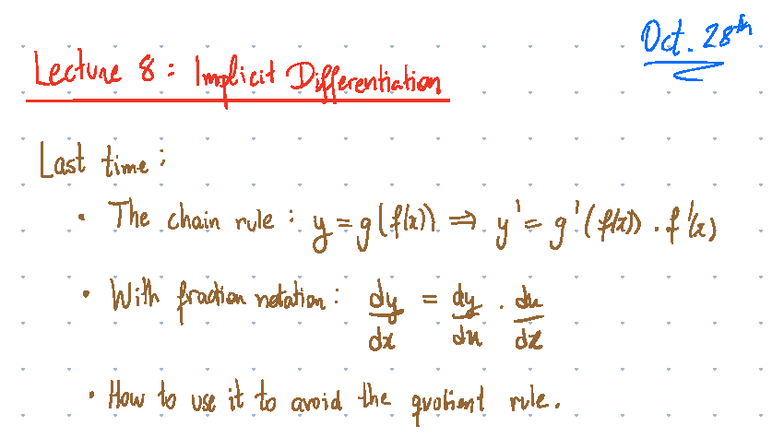 Oct. 28th
Lecture 8: Implicit Differentiation
Last time:
• The chain rule: y = g(f(x)) ⟹ y' = g'(f(x)) · f'(x)
• With fraction notation: dy/dx = dy/du · du/dx
• How to use it to avoid the quotient rule.